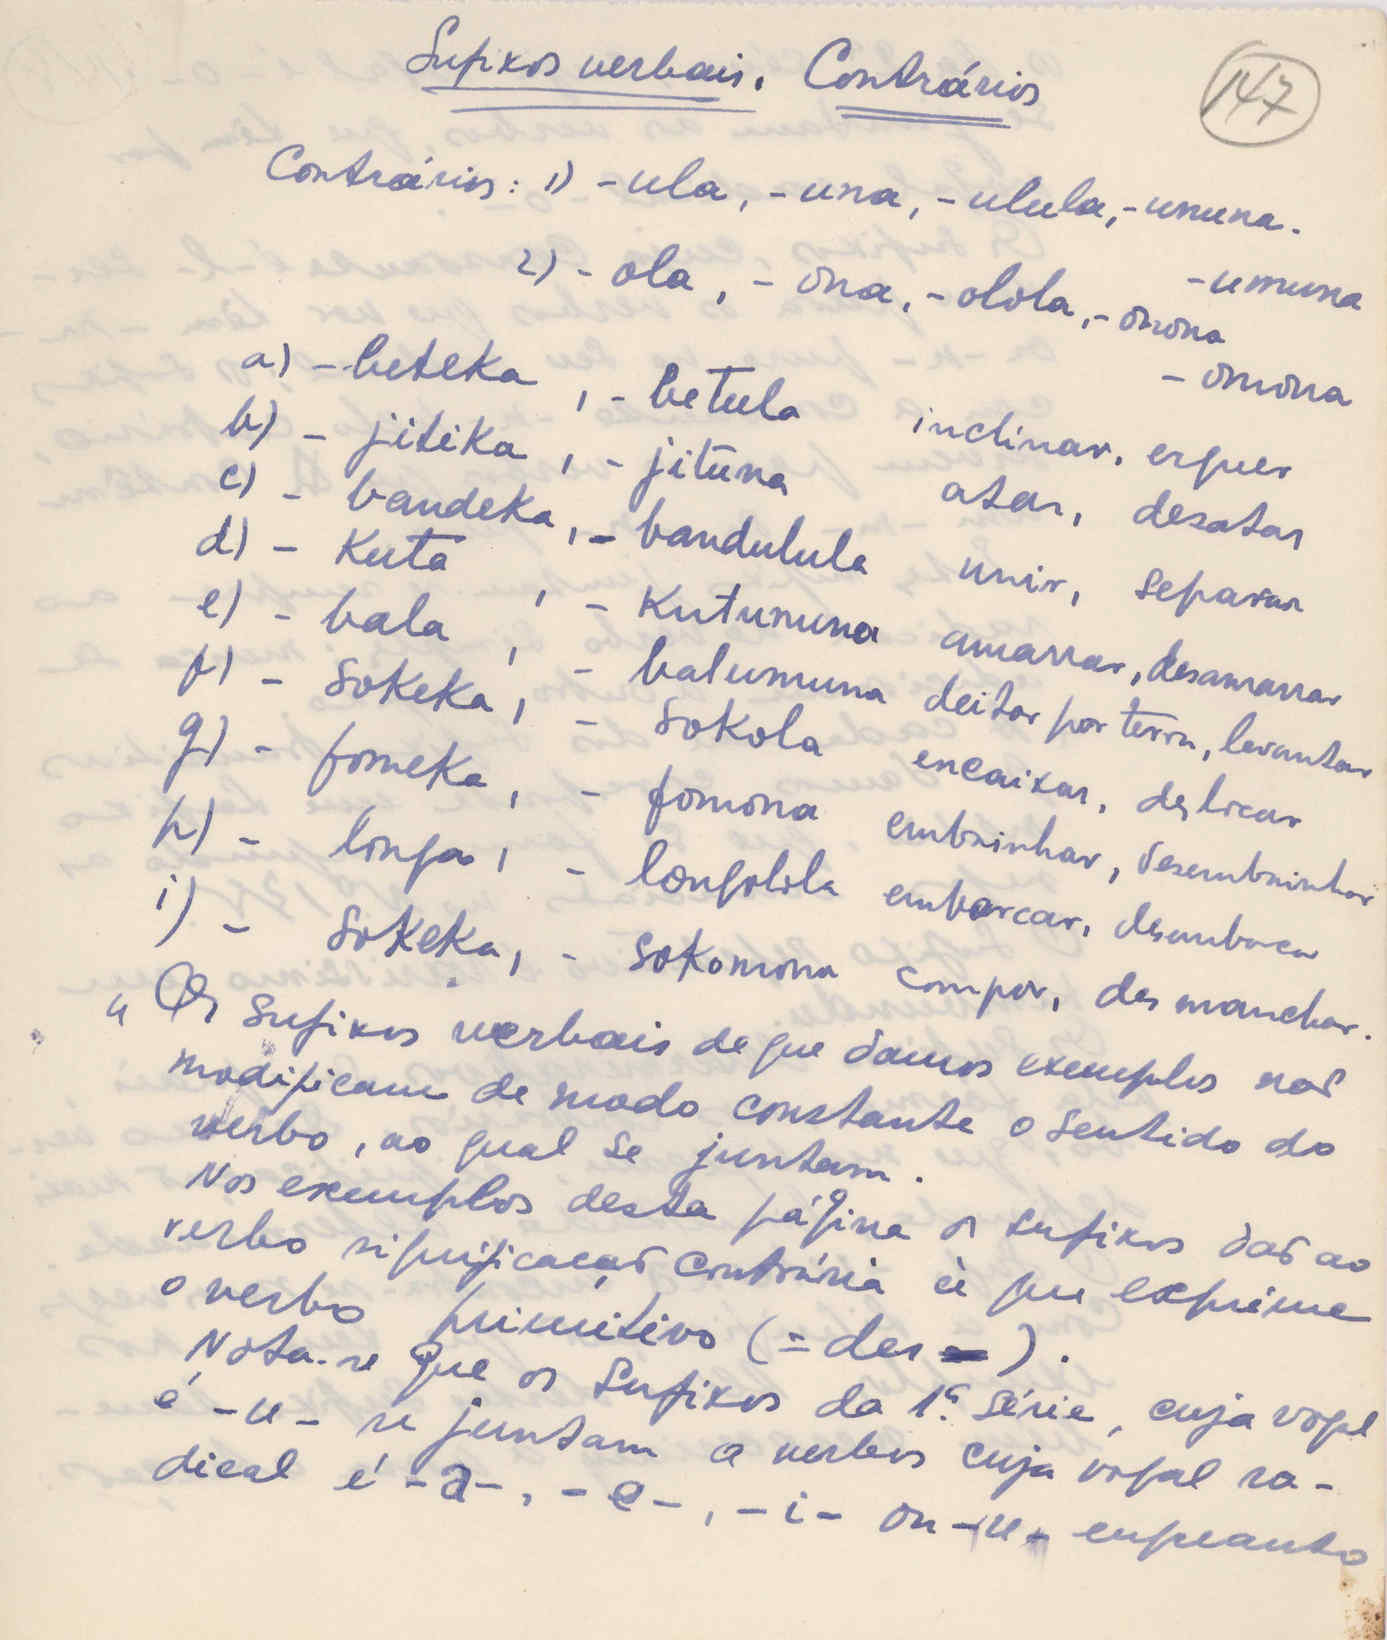 Sufixos verbais. Contrários
147
Contrários: 1) -ula, -una, -ulula, -ununa.
-umuna
2) -ola, -ona, -olola, -onona
-omona
a) -beteka, -betula inclinar, erguer
b) -jitika, -jituna atar, desatar
c) -bandeka, -bandulula unir, separar
d) -Kuta, -Kutununa amarrar, desamarrar
e) -bala, -balumuna deitar por terra, levantar
f) -sokeka, -sokola encaixar, deslocar
g) -fomeka, -fomona embainhar, desembainhar
h) -longa, -longolola embarcar, desembarcar
i) -sokeka, -sokomona compor, desmanchar.
" Os sufixos verbais de que damos exemplos nos
modificam de modo constante o sentido do
verbo, ao qual se juntam.
Nos exemplos desta página os sufixos dão ao
verbo significação contrária à que exprime
o verbo primitivo (= des-).
Nota-se que os sufixos da 1ª série, cuja vogal
é -u- se juntam a verbos cuja vogal ra-
dical é -a-, -e-, -i- ou -u- enquanto